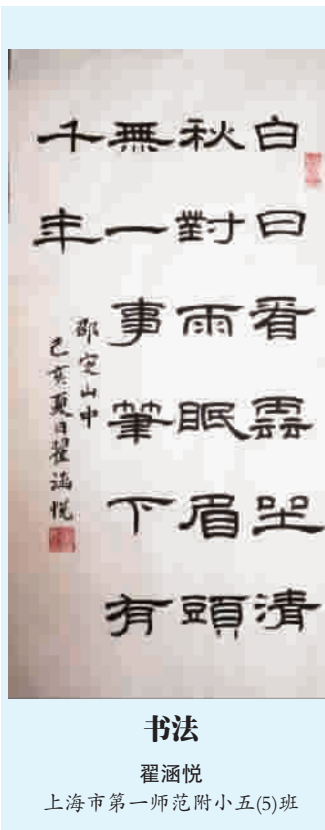 白日看雲坐清
秋對雨眠眉頭
無一事筆下有
千年
邵定山中
己亥夏日翟涵悦
书法
翟涵悦
上海市第一师范附小五(5)班